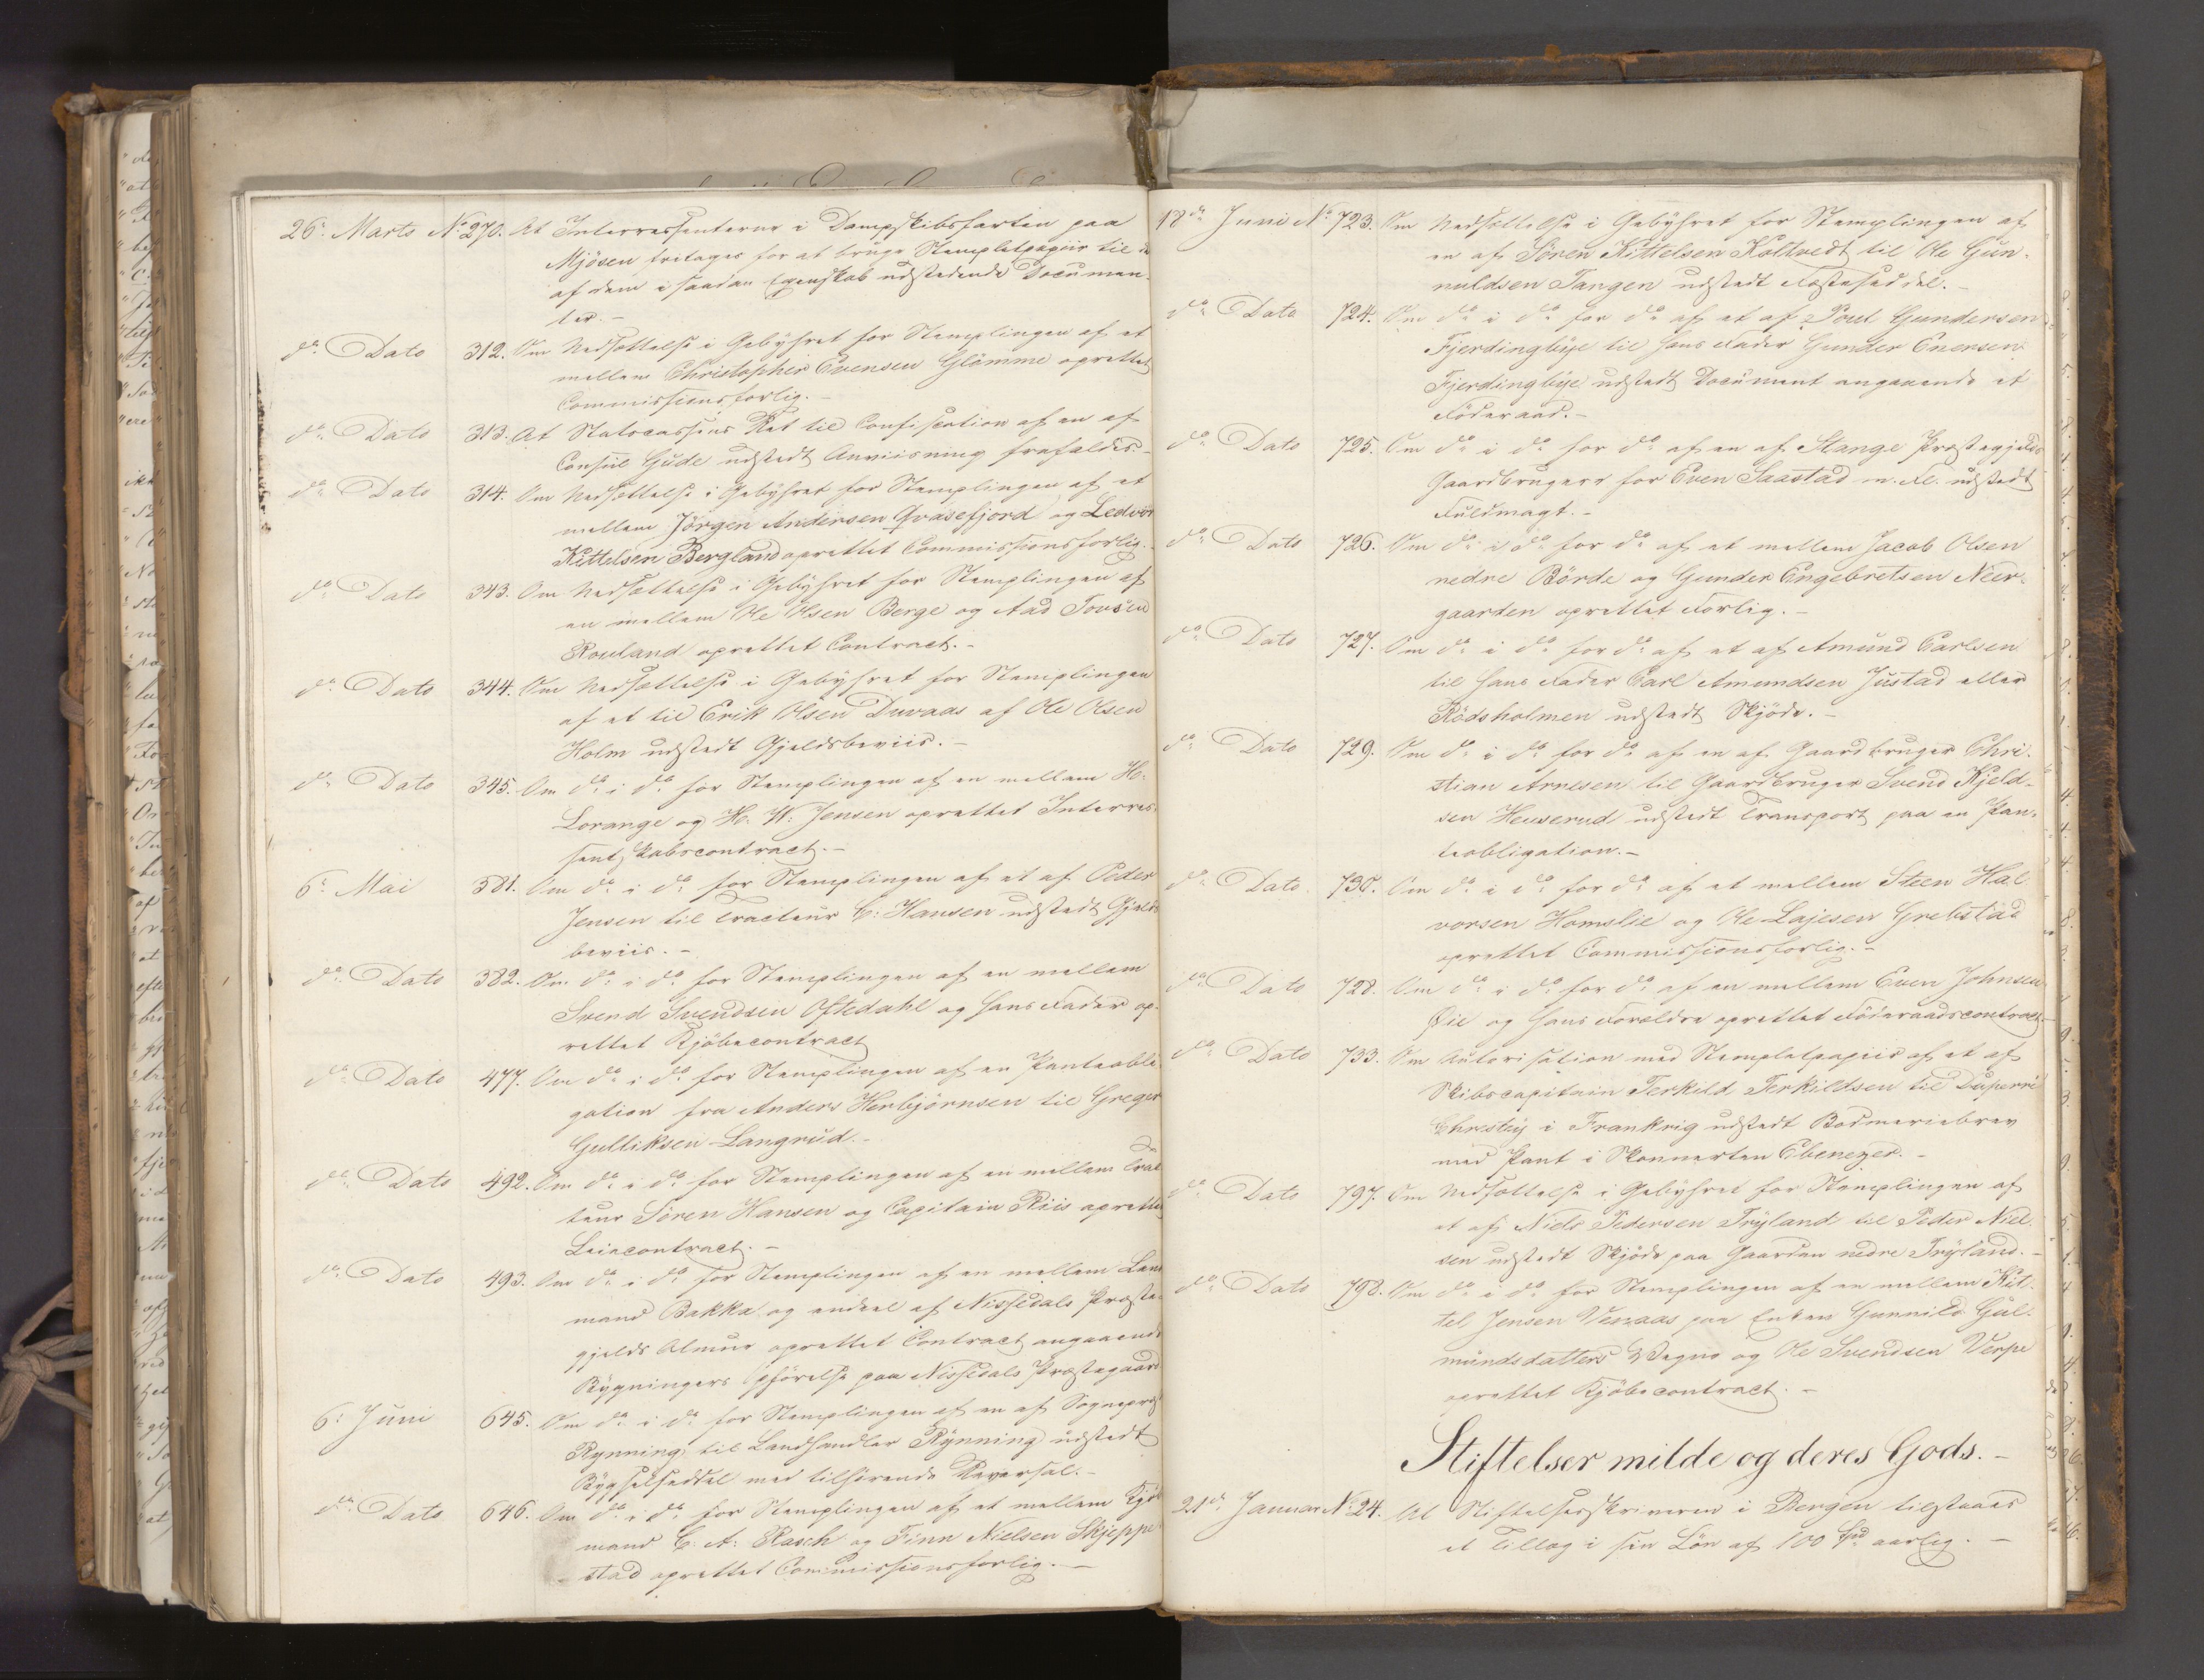 26: Marts No 270. At Interessenterne i Dampskibsfarten paa
Mjösen fritages for at bruge Stempletpapiir til de
af dem i saadan Egenskab udstedende Documen-
ter. -
do Dato 312. Om Nedsættelse i Gebyhret for Stemplingen af et
mellem Christopher Evensen Glömme oprettet
Commissionsforlig. -
do Dato 313. At Statscassens Ret til Confiscation af en af
Consul Gude udstedt Anviisning frafaldes. -
do Dato 314. Om Nedsættelse i Gebyhret for Stemplingen af et
mellem Jörgen Andersen Qvasefjord og Ledvor
Kittelsen Bergland oprettet Commissionsforlig. -
do Dato 343. Om Nedsættelse i Gebyhret for Stemplingen af
en mellem Ole Olsen Berge og Aad Tovsen
Rouland oprettet Contract. -
do Dato 344. Om Nedsættelse i Gebyhret for Stemplingen
af et til Erik Olsen Duvaas af Ole Olsen
Holm udstedt Gjeldsbeviis. -
do Dato 345. Om do i do for Stemplingen af en mellem H:
Lorange og H. W. Jensen oprettet Interes-
sentskabscontract. -
6: Mai 381. Om do i do for Stemplingen af et af Peder
Jensen til Tracteur C: Hansen udstedt Gjelds
beviis. -
do Dato 382. Om do i do for Stemplingen af en mellem
Svend Svendsen Oftedahl og hans Fader op-
rettet Kjöbecontract
do Dato 477. Om do i do for Stemplingen af en Panteobli-
gation fra Anders Herbjörnsen til Greger
Gulliksen Langrud. -
do Dato 492. Om do i do for Stemplingen af en mellem Trac
teur Sören Hansen og Capitain Riis oprettet
Leiecontract. -
do Dato 493. Om do i do for Stemplingen af en mellem Lens
mand Bakka og endeel af Nissedals Præste-
gjelds Almue oprettet Contract angaaende
Bygningers Opförelse paa Nissedals Præstegaard
6: Juni 645. Om do i do for Stemplingen af en af Sognepræst
Rynning til Landhandler Rynning udstedt
Bygselseddel med tilhörende Reversal. -
do Dato 646. Om do i do for Stemplingen af et mellem Kjöb
mand C. A: Rasch og Finn Nielsen Skjeppe
stad oprettet Commissionsforlig. -
18de Juni No 723. Om Nedsættelse i Gebyhret for Stemplingen af
en af Sören Kittelsen Holtvedt til Ole Gun-
nuldsen Tangen udstedt Fæsteseddel. -
do Dato 724. Om do i do for do af et af Poul Gundersen
Fjerdingbye til hans Fader Gunder Enersen
Fjerdingbye udstedt Document angaaende et
Föderaad. -
do Dato 725. Om do i do for do af en af Stange Præstegjelds
Gaardbrugere for Even Saastad m. Fl. udstedt
Fuldmagt. -
do Dato 726. Om do i do for do af et mellem Jacob Olsen
nedre Börde og Gunder Engebretsen Neer-
gaarden oprettet Forlig. -
do Dato 727. Om do i do for do af et af Amund Carlsen
til hans Fader Carl Amundsen Justad eller
Rödsholmen udstedt Skjöde. -
do Dato 729. Om do i do for do af en af Gaardbruger Chri-
stian Arnesen til Gaardbruger Svend Kjeld-
sen Heuserud udstedt Transport paa en Pan-
teobligation. -
do Dato 730. Om do i do for do af et mellem Steen Hal
vorsen Homslie og Ole Lajesen Grebstad
oprettet Commissionsforlig. -
do Dato 728. Om do i do for do af en mellem Even Johnsen
Öie og hans Forældre oprettet Föderaadscontract. -
do Dato 733. Om Autorisation med Stempletpapiir af et af
Skibscapitain Terkild Terkildsen til Duperré
Chresty i Frankrig udstedt Bodmeriebrev
med Pant i Skonnerten Ebenezer. -
do Dato 797. Om Nedsættelse i Gebyhret for Stemplingen af
et af Niels Pedersen Tryland til Peder Niel-
sen udstedt Skjöde paa Gaarden nedre Tryland. -
do Dato 798. Om do i do for Stemplingen af en mellem Kit-
tel Jensen Venaas paa Enken Gunnild Gul-
mundsdatters Vegne og Ole Svendsen Verpe
oprettet Kjöbecontract. -
Stiftelser milde og deres Gods. -
21de Januar No 24. At Stiftelsesskriveren i Bergen tilstaaes
et Tillæg i sin Lön af 100 Spd aarlig. -